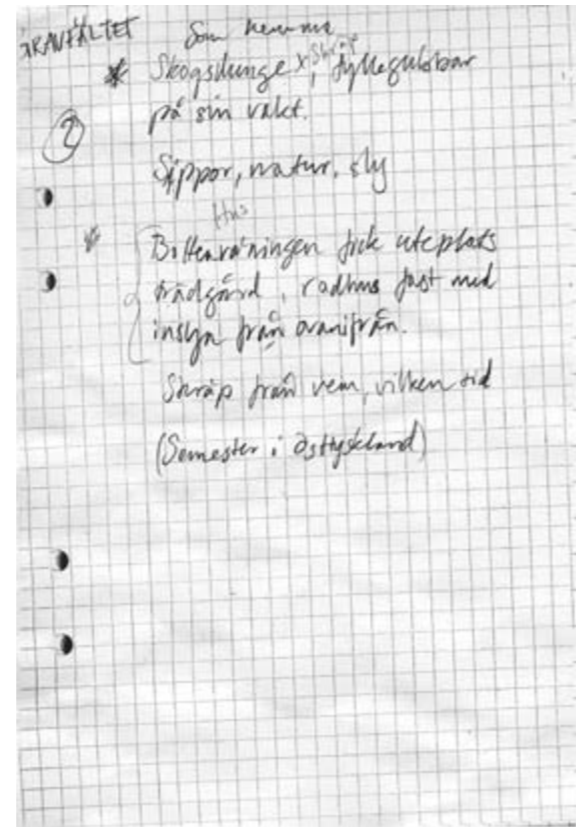 ÄRAVFÄLTET
Som hemma
* Skogsdunge x Skräp, fyllegubbar
på sin vakt.
2
Sippor, natur, sly
Hus
* Bottenvåningen fick uteplats
trädgård, radhus fast med
insyn från ovanifrån.
Skräp från vem, vilken tid
(Semester i Östtyskland)